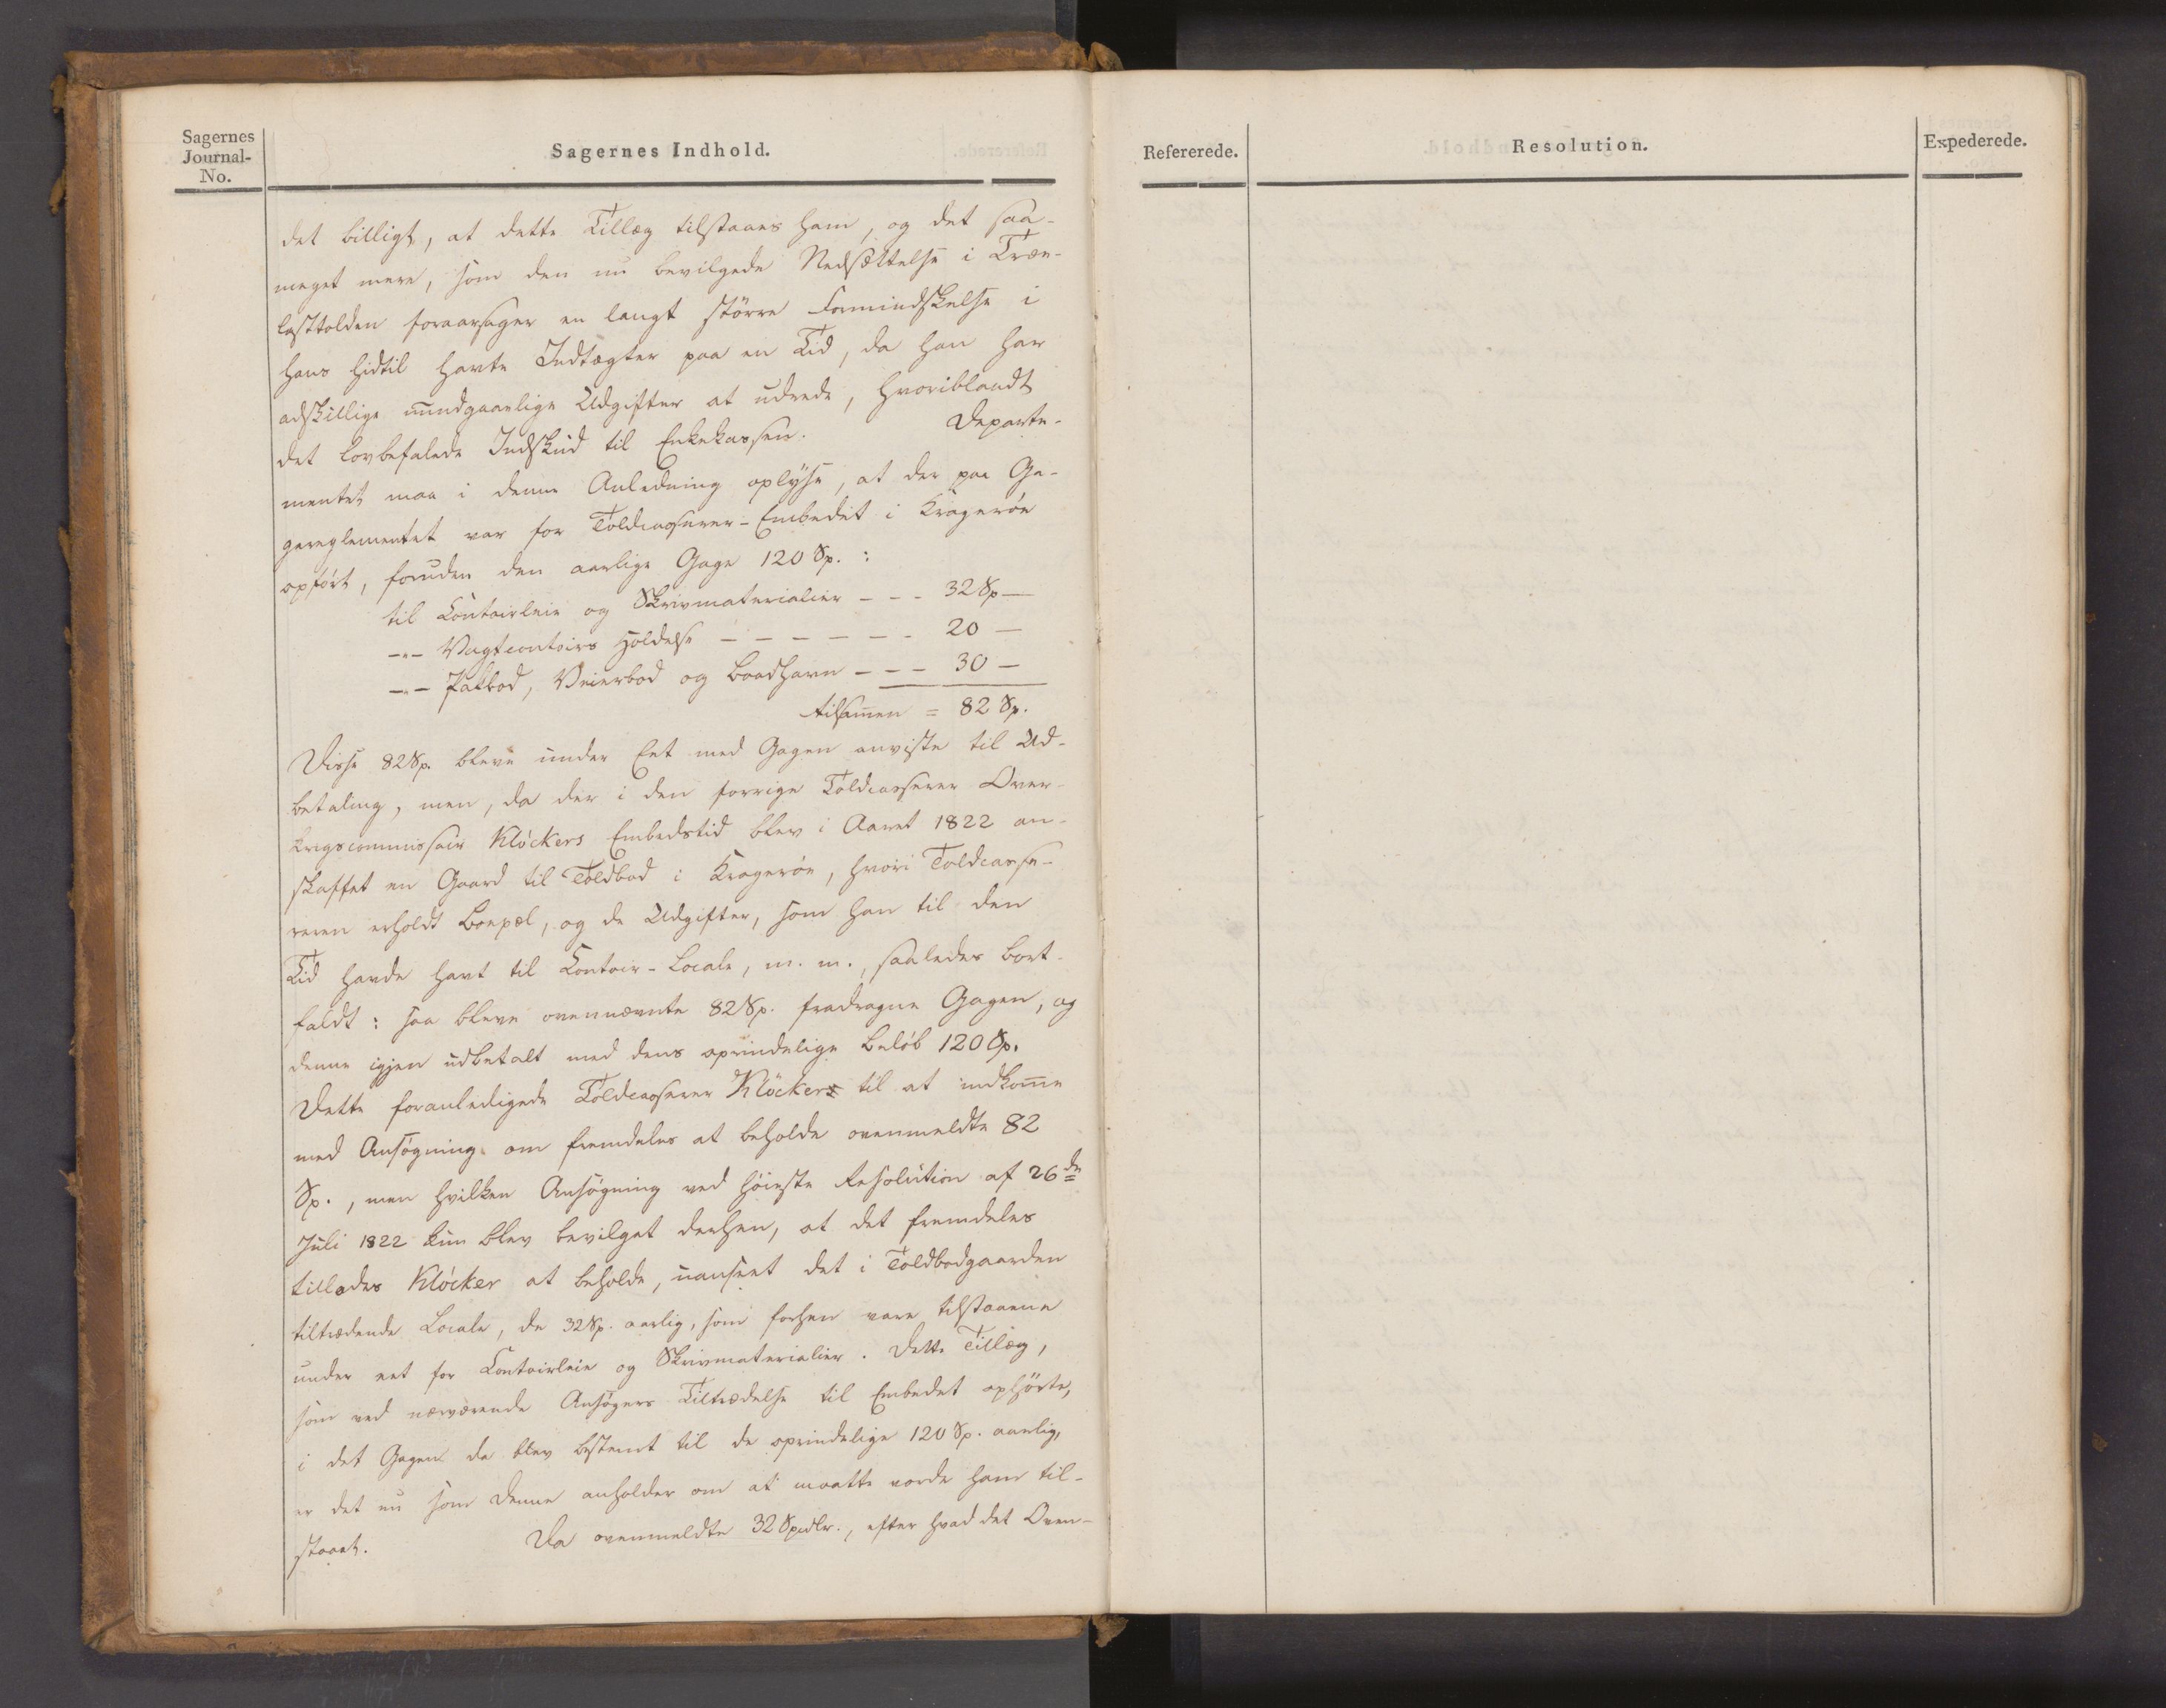 Sagernes
Journal-
No.
Sagernes Indhold.
Refererede.
Resolution.
Expederede.
det billigt, at dette Tillæg tilstaaes ham, og det saa-
meget mere, som den nu bevilgede Nedsættelse i Træe-
lasttolden foraarsager en langt større Formindskelse i
hans hidtil havte Indtægter paa en Tid, da han har
adskillige uundgaaelige Udgifter at udrede, hvoriblandt
det lovbefalede Indskud til Enkekassen. Departe-
mentet maa i denne Anledning oplyse, at der paa Ga-
gereglementet var for Toldcasserer-Embedet i Kragerøe
opført, foruden den aarlige Gage 120 Sp.:
til Contoirleie og Skrivmaterialier - - - 32 Sp —
-"- Vagtcontoirs Holdelse - - - - - - 20 —
-"- Pakbod, Veierbod og Baadhavn - - - 30 —
tilsammen = 82 Sp.
Disse 82 Sp. bleve under Eet med Gagen anviste til Ud-
betaling, men, da der i den forrige Toldcasserer Over-
krigscommissair Klöckers Embedstid blev i Aaret 1822 an-
skaffet en Gaard til Toldbod i Kragerøe, hvori Toldcasse-
reren erholdt Boepæl, og de Udgifter, som han til den
Tid havde havt til Contoir-Locale, m. m., saaledes bort-
faldt: saa bleve ovennævnte 82 Sp. fradragne Gagen, og
denne igjen udbetalt med dens oprindelige Beløb 120 Sp.
Dette foranledigede Toldcasserer Klöcker til at indkomme
med Ansøgning om fremdeles at beholde ovenmeldte 82
Sp., men hvilken Ansøgning ved høieste Resolution af 26de
Juli 1822 kun blev bevilget derhen, at det fremdeles
tillades Klöcker at beholde, uanseet det i Toldbodgaarden
tiltrædende Locale, de 32 Sp. aarlig, som forhen vare tilstaaene
under eet for Contoirleie og Skrivmaterialier. Dette Tillæg,
som ved nærværende Ansøgers Tiltrædelse til Embedet ophørte,
i det Gagen da blev bestemt til de oprindelige 120 Sp. aarlig,
er det nu som denne anholder om at maatte vorde ham til-
staaet. Da ovenmeldte 32 Spdlr., efter hvad det Oven-